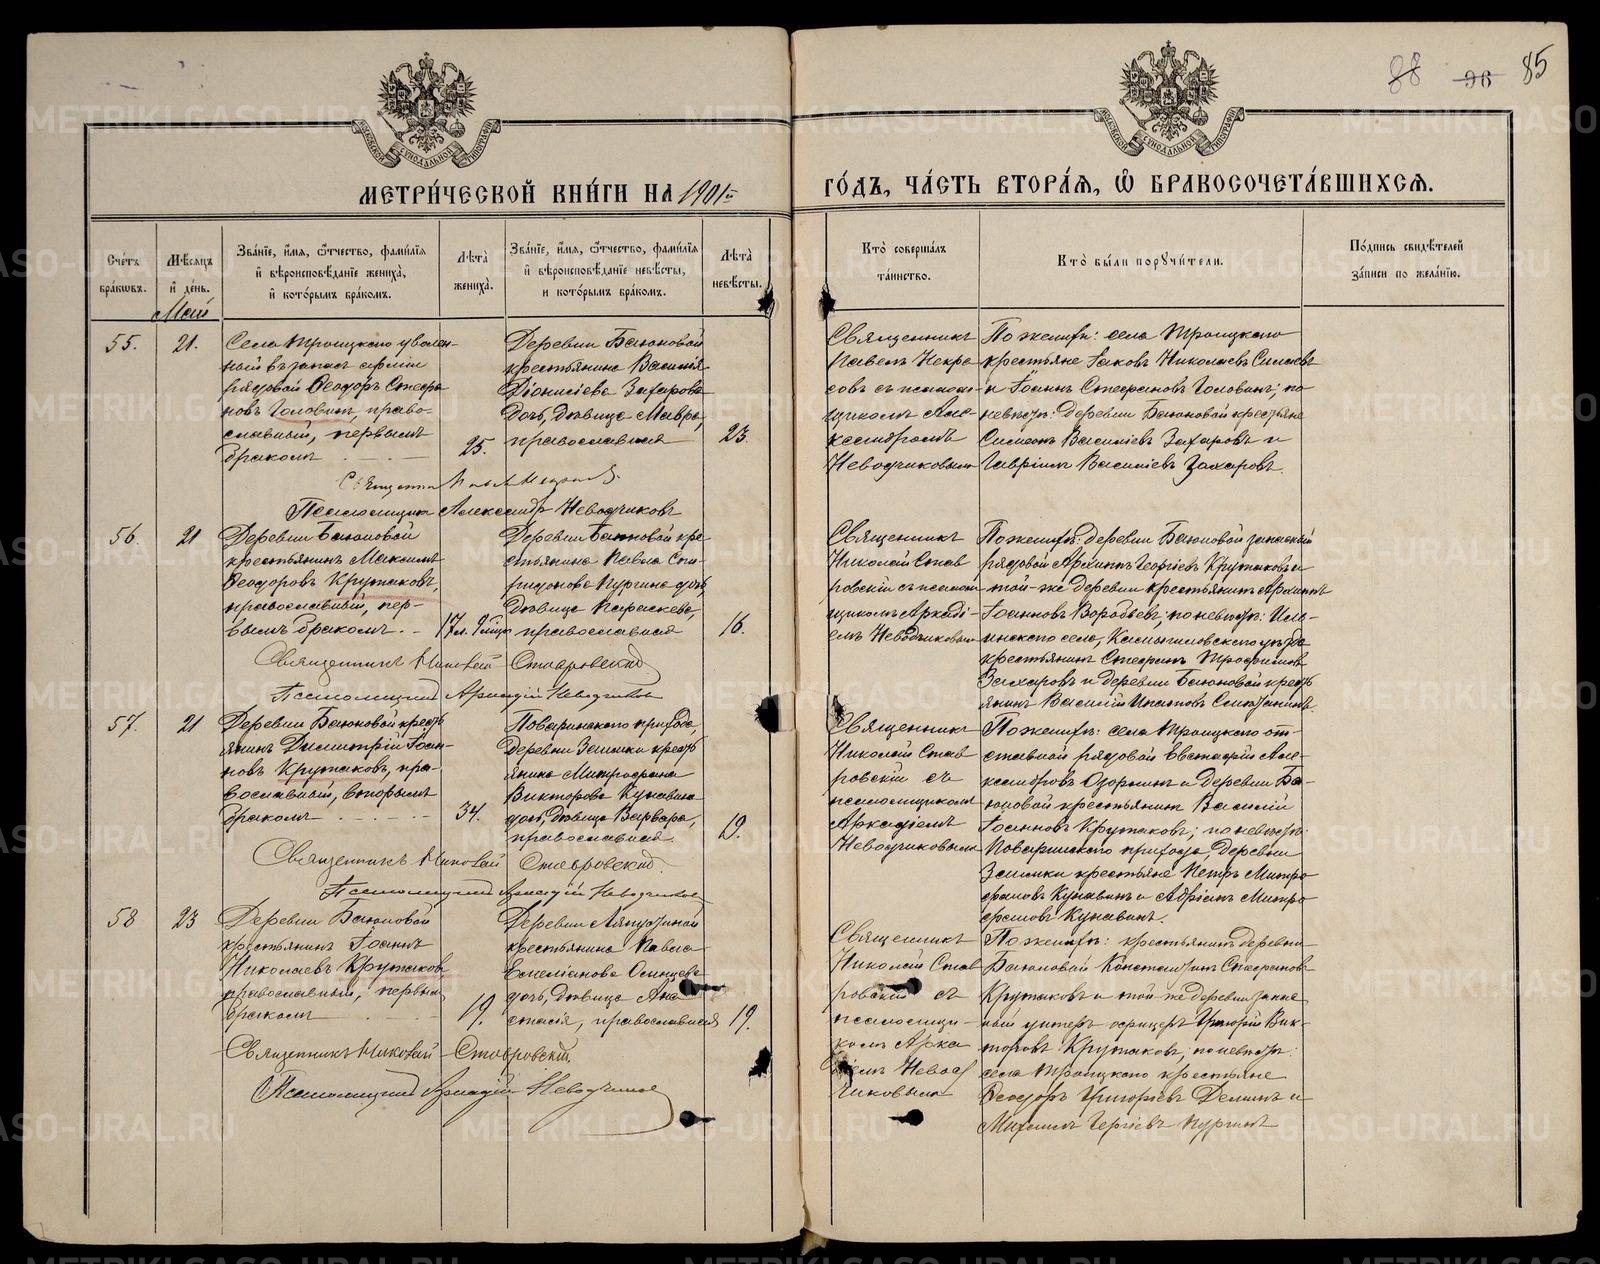 88 96 85
МОСКОВСКОЙ СѴНОДАЛЬНОЙ ТИПОГРАФІИ
МОСКОВСКОЙ СѴНОДАЛЬНОЙ ТИПОГРАФІИ
МЕТРИ́ЧЕСКОЙ КНИ́ГИ НА 1901й
ГО́ДЪ, ЧА́СТЬ ВТОРА́Я, Ѽ БРАКОСОЧЕТА́ВШИХСЯ.
Сче́тъ бра́кѡвъ.
Мѣ́сяцъ и҆ де́нь.
Зва́нїе, и҆́мя, ѻ҆́тчество, фами́лїя и҆ вѣроисповѣ́данїе жениха̀, и҆ кото́рымъ бра́комъ.
Лѣ́та жениха̀.
Зва́нїе, и҆́мя, ѻ҆́тчество, фами́лїя и҆ вѣроисповѣ́данїе невѣ́сты, и кото́рымъ бра́комъ.
Лѣ́та невѣ́сты.
Кто̀ соверша́лъ та́инство.
Кто̀ бы́ли порꙋчи́тели.
По́дпись свидѣ́телей за́писи по жела́нїю.
Май
55.
21.
Села Троицкаго уволен-
ный въ запасъ арміи
рядовой Ѳеодоръ Стефа
новъ Головинъ, право-
славный, первымъ
бракомъ
25.
Деревни Баюновой
крестьянина Василія
Діонисіева Захарова
дочь, дѣвица Мавра,
православная
23.
Священникъ
Павелъ Некра
совъ съ псалом-
щикомъ Але-
ксандромъ
Неводчиковымъ
По женихѣ: села Троицкаго
крестьяне Іаковъ Николаевъ
и Іоаннъ Стефановъ Головинъ; по
невѣстѣ: деревни Баюновой крестьяне
Симеонъ Василіевъ Захаровъ и
Гавріилъ Василіевъ Захаровъ.
Священникъ Павелъ Некрасовъ.
Псаломщикъ Александръ Неводчиковъ
56.
21
Деревни Баюновой
крестьянинъ Максимъ
Ѳеодоровъ Крутаковъ,
православный, пер-
вымъ бракомъ.
17 л. 9 мѣц.
Деревни Баюновой кре
стьянина Павла Спи-
ридонова Пургина дочь,
дѣвица Параскева,
православная
16.
Священникъ
Николай Став
ровскій съ псалом
щикомъ Аркаді-
емъ Неводчиковымъ
По женихѣ: деревни Баюновой запасный
рядовой Архиппъ Георгіевъ Крутаковъ и
той-же деревни крестьянинъ Архиппъ
Іоанновъ Воробьевъ; по невѣстѣ: Иль-
инскаго села, Камышловскаго уѣзда
крестьянинъ Стефанъ Трофимовъ
Захаровъ и деревни Баюновой кресть
янинъ Василій
Священникъ Николай Ставровскій
Псаломщикъ Аркадій Неводчиковъ
57.
21
Деревни Баюновой кресть
янинъ Димитрій Іоан-
новъ Крутаковъ, пра-
вославный, вторымъ
бракомъ
34.
Поваринскаго прихода,
деревни Зимники кресть
янина Митрофана
Викторова Кунавина
дочь, дѣвица Варвара,
православная.
19.
Священникъ
Николай Став
ровскій съ
псаломщикомъ
Аркадіемъ
Неводчиковымъ
По женихѣ: села Троицкаго от-
ставной рядовой Евстафій Але-
ксандровъ и деревни Ба-
юновой крестьянинъ Василій
Іоанновъ Крутаковъ; по невѣстѣ:
Поваринскаго прихода, деревни
Зимники крестьяне Петръ Митро
фановъ Кунавинъ и Адріанъ Митро
фановъ Кунавинъ.
Священникъ Николай Ставровскій.
Псаломщикъ Аркадій Неводчиковъ
58
23
Деревни Баюновой
крестьянинъ Іоаннъ
Николаевъ Крутаковъ,
православный, первымъ
бракомъ
19.
Деревни Ляпустиной
крестьянина Павла
Емеліанова Осинцева
дочь, дѣвица Ана
стасія, православная
19.
Священникъ
Николай Став
ровскій съ
псаломщи-
комъ Арка
діемъ Невод
чиковымъ
По женихѣ: крестьянинъ деревни
Баюновой Константинъ Стефановъ
Крутаковъ и той же деревни запас
ный унтеръ-офицеръ Григорій Вик-
торовъ Крутаковъ; по невѣстѣ:
села Троицкаго крестьяне
Ѳеодоръ Григорьевъ Деминъ и
Михаилъ Георгіевъ Пургинъ
Священникъ Николай Ставровскій.
Псаломщикъ Аркадій Неводчиковъ
METRIKI.GASO-URAL.RU